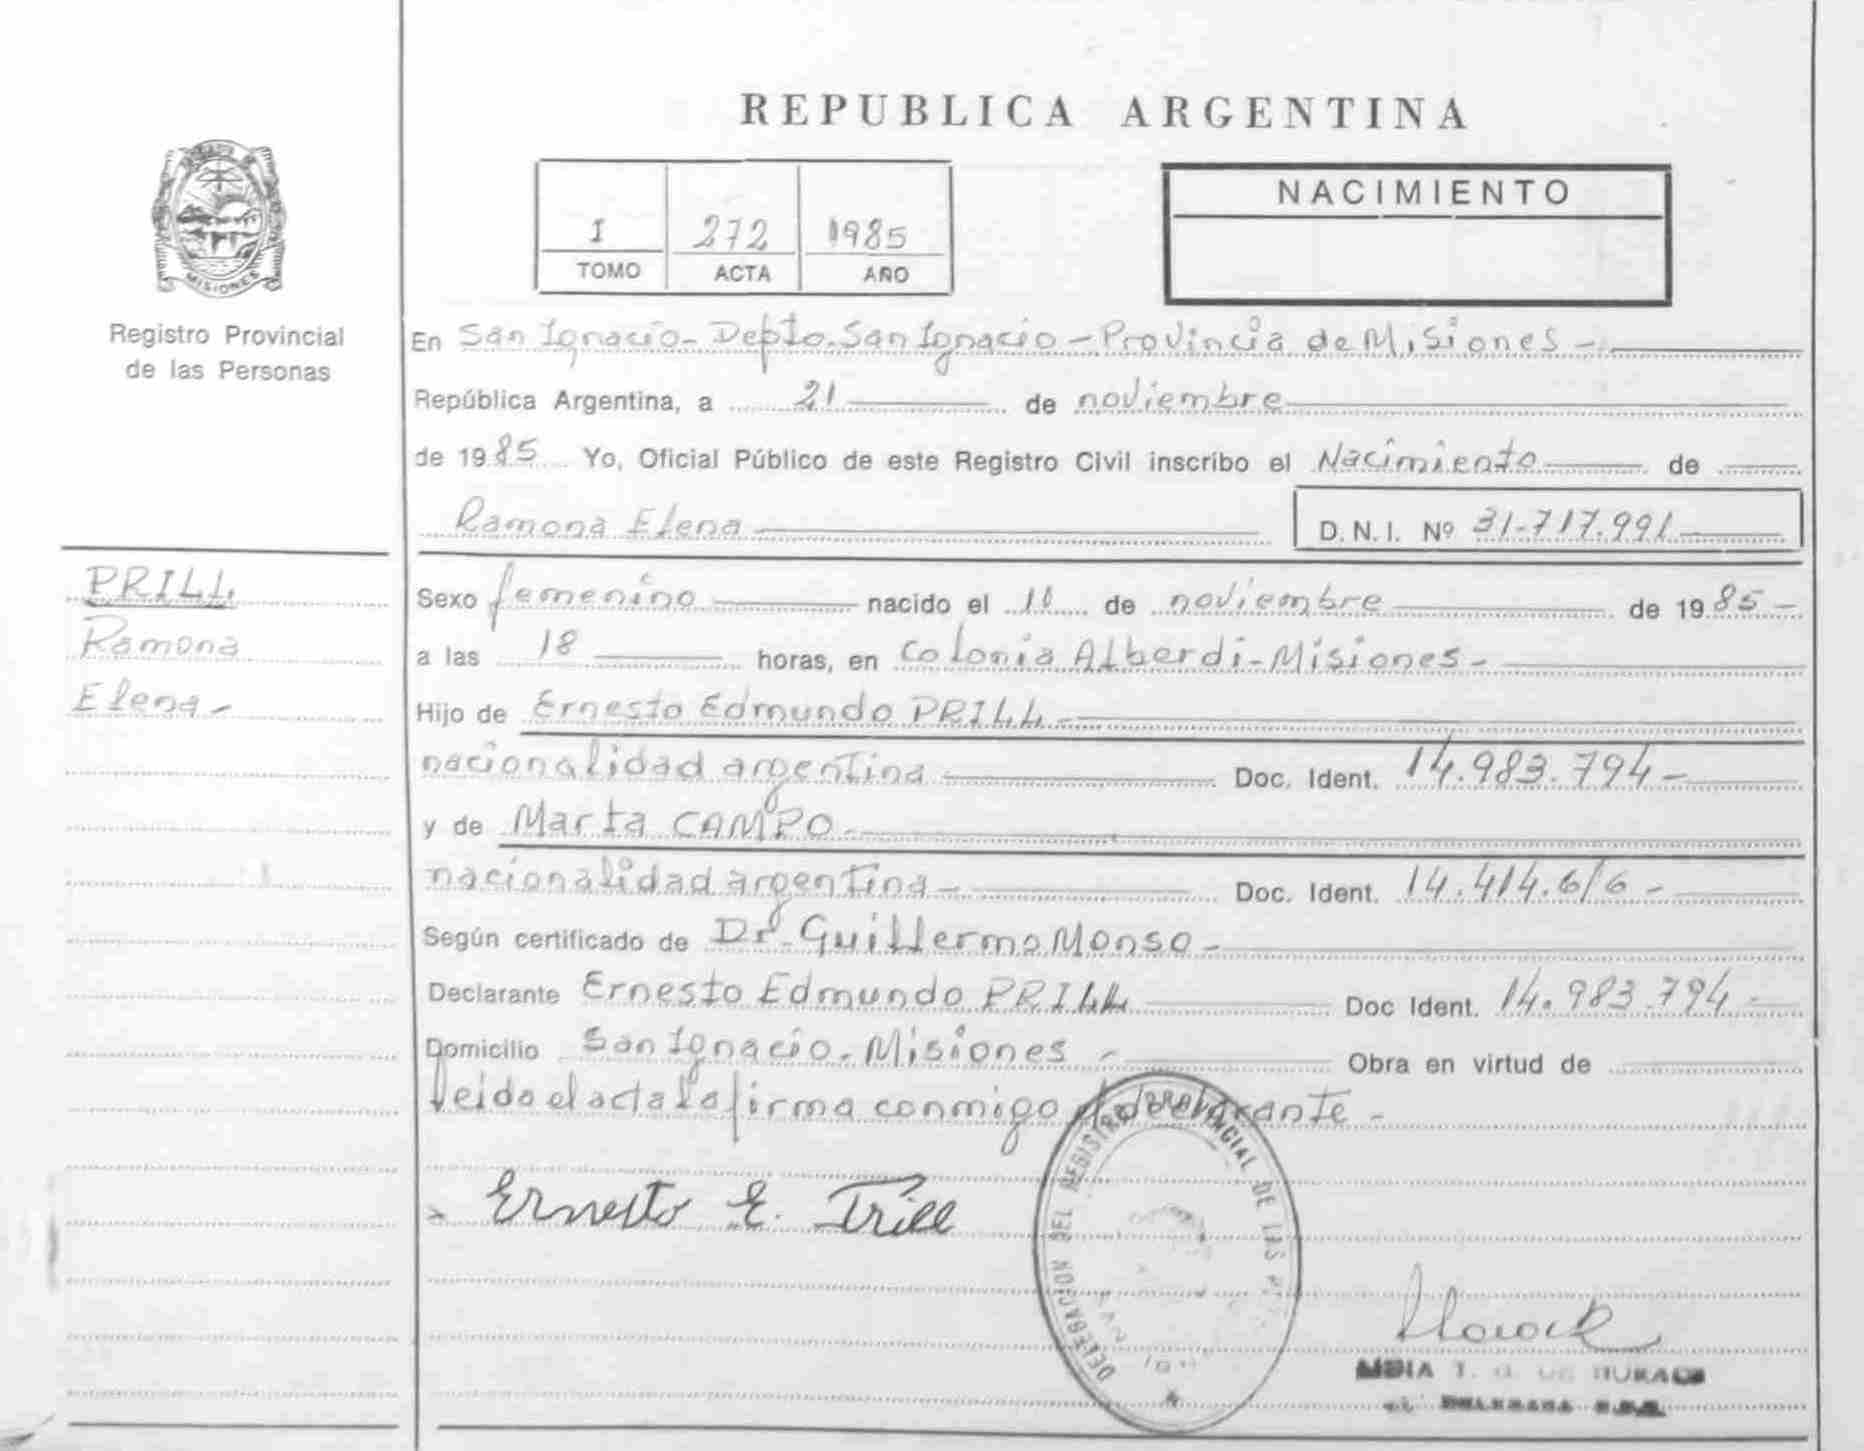 REPUBLICA ARGENTINA
NACIMIENTO
I 272 1985
TOMO ACTA AÑO
MISIONES
Registro Provincial
de las Personas
En San Ignacio - Depto. San Ignacio - Provincia de Misiones -
República Argentina, a 21 de noviembre
de 1985 Yo, Oficial Público de este Registro Civil inscribo el Nacimiento de
Ramona Elena D.N.I. Nº 31-717.991
PRILL
Ramona
Elena -
Sexo femenino nacido el 11 de noviembre de 1985 -
a las 18 horas, en Colonia Alberdi - Misiones -
Hijo de Ernesto Edmundo PRILL -
nacionalidad argentina Doc. Ident. 14.983.794 -
y de Marta CAMPO -
nacionalidad argentina - Doc. Ident. 14.414.616 -
Según certificado de Dr. Guillermo Monso -
Declarante Ernesto Edmundo PRILL Doc Ident. 14.983.794 -
Domicilio San Ignacio - Misiones - Obra en virtud de
leida el acta la firma conmigo el declarante -
Ernesto E. Prill
DELEGACION DEL REGISTRO PROVINCIAL DE LAS